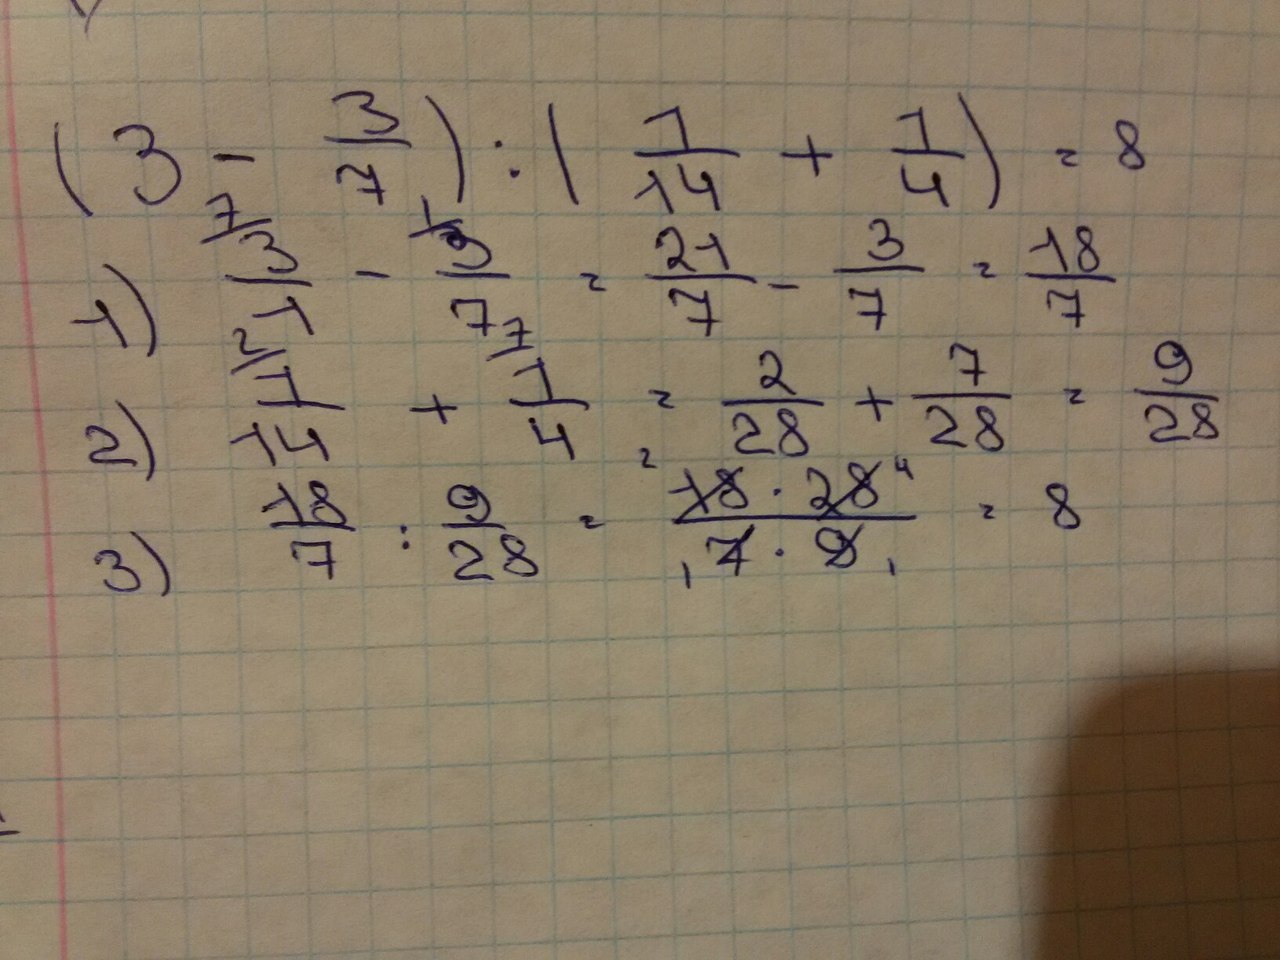 (3 - 3/7) : (1/14 + 1/4) = 8
1) 7/ 3/1 - 1/ 3/7 = 21/7 - 3/7 = 18/7
2) 2/ 1/14 + 7/ 1/4 = 2/28 + 7/28 = 9/28
3) 18/7 : 9/28 = 2 18 · 28 4 / 1 7 · 9 1 = 8